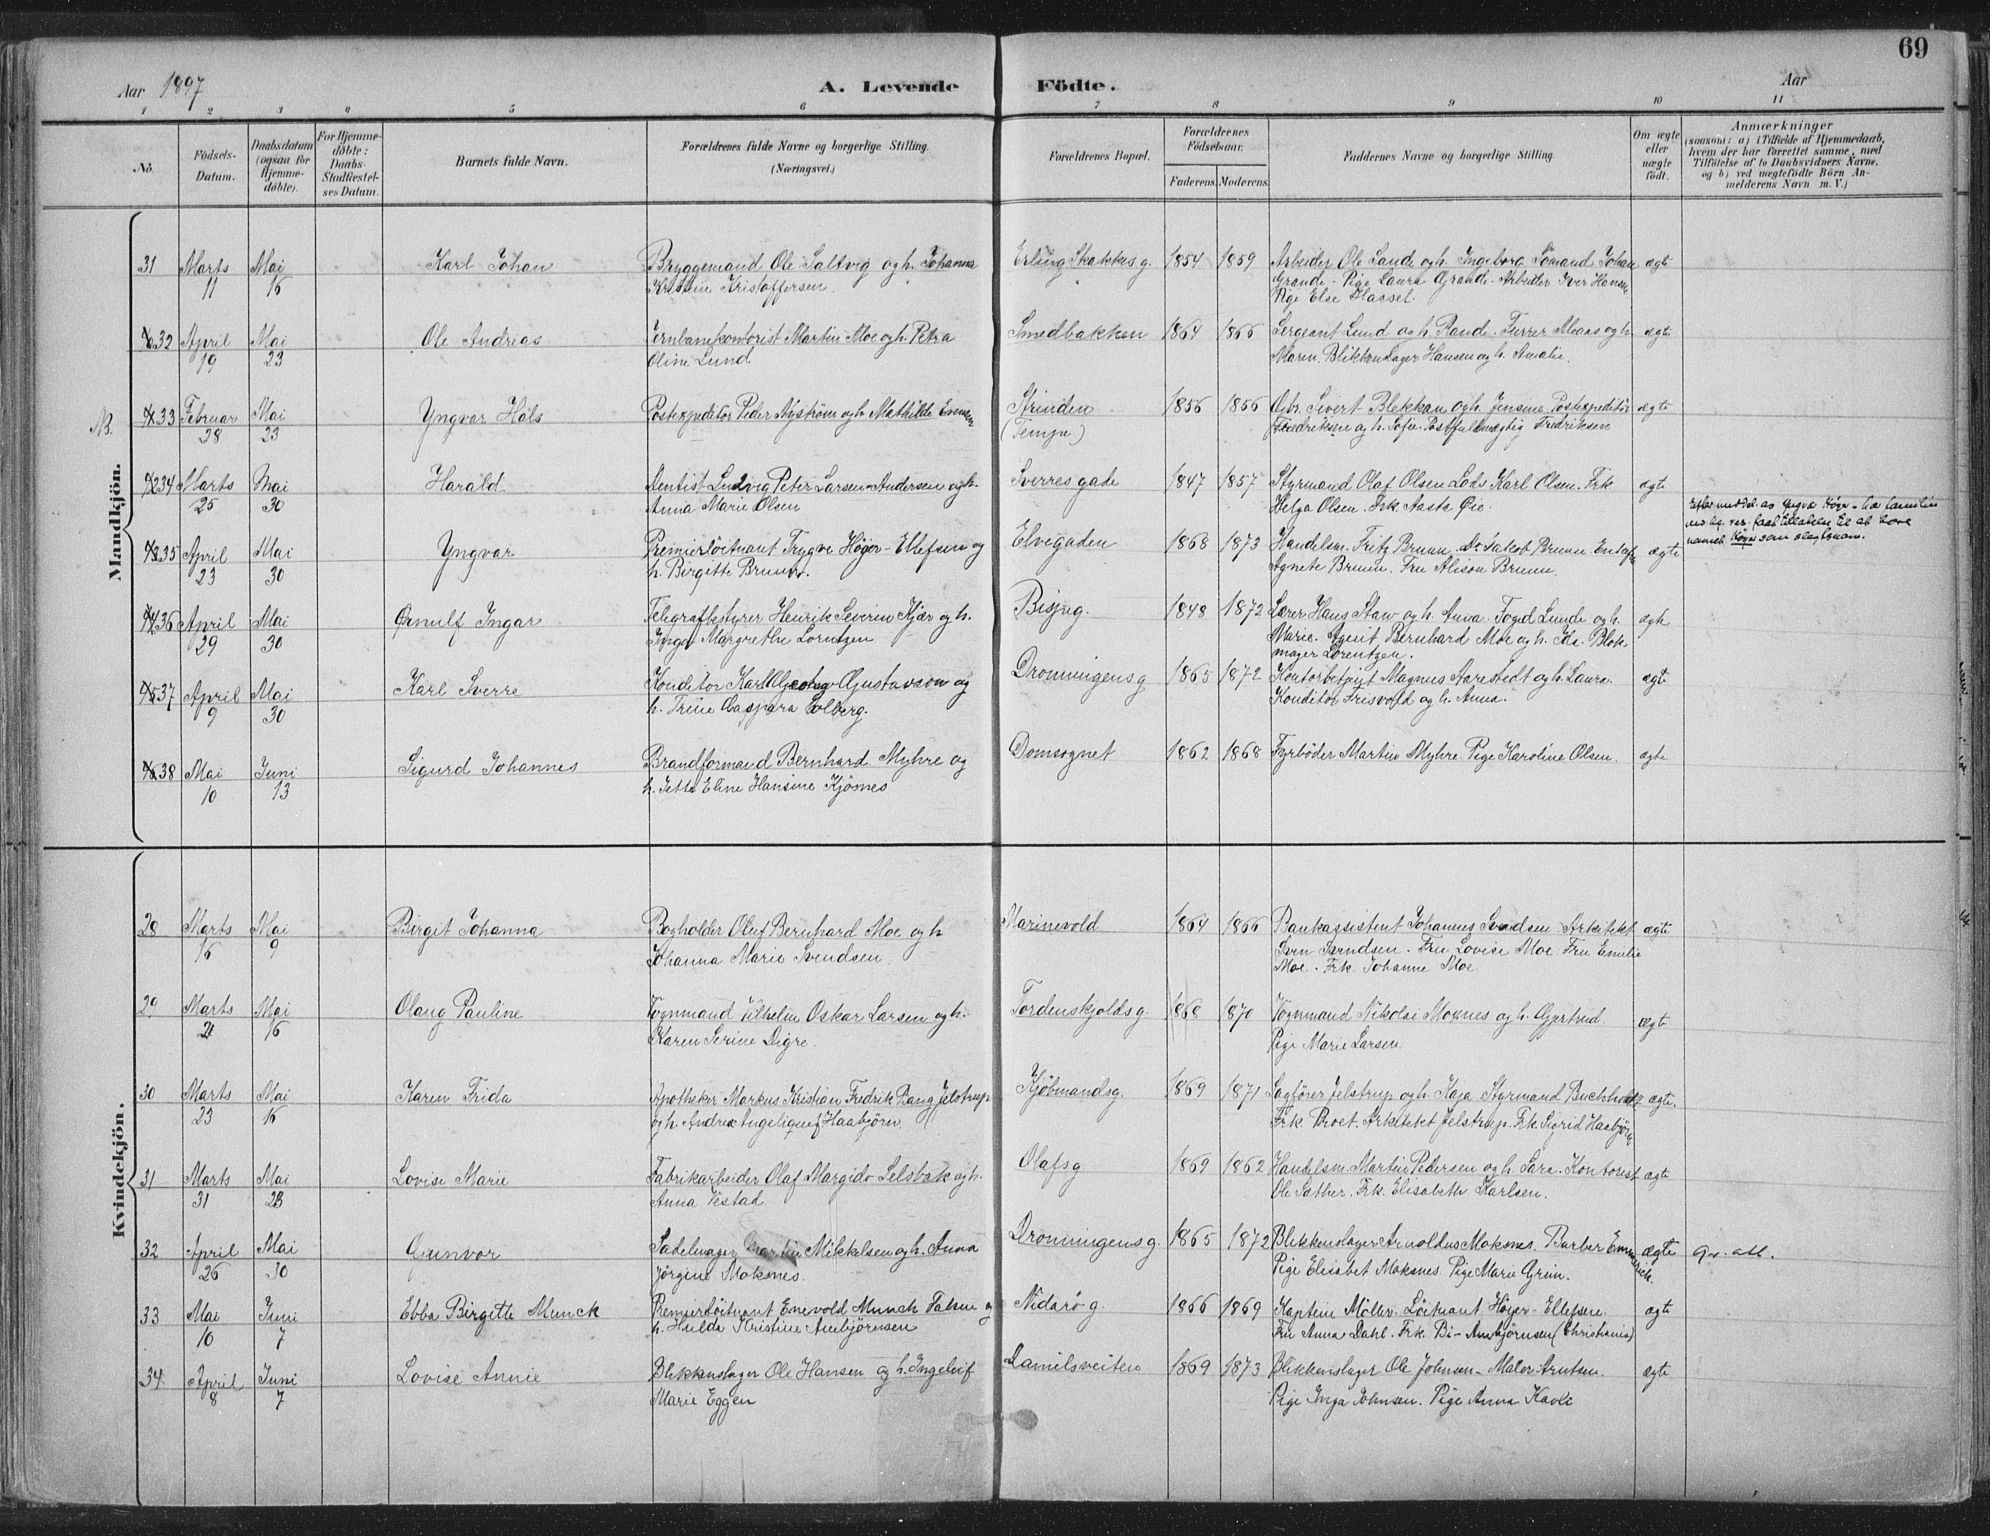 69
Aar 1897
A. Levende Födte.
Aar
1 2 3 4 5 6 7 8 9 10 11
No.
Födsels-
Datum.
Daabsdatum
(ogsaa for
Hjemme-
döbte).
For Hjemme-
döbte:
Daabs-
Stadfæstel-
ses Datum.
Barnets fulde Navn.
Forældrenes fulde Navne og borgerlige Stilling.
(Næringsvei.)
Forældrenes Bopæl.
Forældrenes
Födselsaar.
Faderens. Moderens.
Faddernes Navne og borgerlige Stilling.
Om ægte
eller
uægte
födt.
Anmærkninger
(saasom: a) i Tilfælde af Hjemmedaab,
hvem der har forrettet samme, med
Tilföielse af to Daabsvidners Navne,
og b) ved uægtefödte Börn An-
melderens Navn m. V.)
Mandkjön.
31 Marts Mai Karl Johan Bryggemand Ole Saltvig og h. Johanna Erling Skakkes g. 1854 1859 Arbeider Ole Sand og h. Ingeborg Sömand Johan ægte
11 16 Kristine Kristoffersen. Grande. Pige Laura Grande. Arbeider Iver Hansen
Pige Else Hassel.
32 April Mai Ole Andreas Jernbanekontorist Martin Moe og h. Petra Smedbakken 1864 1866 Sergeant Lund og h. Rande. Furer Moas og h. ægte
19 23 Oline Lund Maren. Blikkenslager Hansen og h. Amalie.
NB. 33 Februar Mai Yngvar Hals Postexpeditör Peder Nyström og h. Mathilde Strinden 1856 1856 Gbr. Sivert Blekkan og h. Jensine Postexpeditör ægte
28 23 (Tempe) Fredriksen og h. Sofie. Postfuldmægtig Fredriksen
34 Marts Mai Harald Dentist Ludvig Peter Larsen Andersen og h. Sverres gade 1847 1857 Styrmand Olaf Olsen Lods Karl Olsen. Frk ægte
25 30 Anna Marie Olsen Helga Olsen. Frk Aasta Öie.
35 April Mai Yngvar Premierlöitnant Trygve Höyer-Ellefsen og Elvegaden 1868 1873 Handelsm. Fritz Bruun. Dr. Jakob Bruun ægte
23 30 h. Birgitte Bruun. Agnete Bruun. Fru Alison Bruun.
navnet Höyer som slegtsnavn.
36 April Mai Ørnulf Ingar Telegrafbestyrer Henrik Severin Kjær og h. Bispeg. 1848 1872 Lærer Hans Staw og h. Anna. Fogd Lunde og h. ægte
29 30 Inga Margrethe Lorntzen Marie. Agent Bernhard Moe og h. Ida. Blok-
mager Lorentzen.
37 April Mai Karl Sverre Konditor Karl Georg Gustavson og Dronningensg 1865 1872 Kontorbetjent Magnus Aarstedt og h. Laura. ægte
9 30 h. Trine Caspara Solberg. Konditor Frisvold og h. Anna.
38 Mai Juni Sigurd Johannes Brandformand Bernhard Myhre og Domsognet 1862 1868 Fyrböder Martin Myhre Pige Karoline Olsen. ægte
10 13 h. Jette Eline Hansine Kjösnes
Kvindekjön.
28 Marts Mai Birgit Johanna Bogholder Oluf Bernhard Moe og h Marinevold 1864 1866 Bankassistent Johannes Svendsen Arkitekt ægte
16 9 Johanna Marie Svendsen. Sven Svendsen. Fru Lovise Moe. Fru Emilie
Moe. Frk. Johanne Moe.
29 Marts Mai Olaug Pauline Vognmand Vilhelm Oskar Larsen og h. Tordenskjolds g. 1868 1870 Vognmand Nikolai Moxnes og h. Gjertrud. ægte
21 16 Karen Serine Digre. Pige Marie Larsen.
30 Marts Mai Karen Frida Apotheker Markus Kristian Fredrik Bang Jelstrup Kjöbmandsg. 1869 1871 Sagförer Jelstrup og h. Kaja Styrmand Buchholdt ægte.
23 16 og h. Andrea Angelique Haabjörn. Frk. Broet. Arkitekt Jelstrup. Frk. Sigrid Haabjörn
31 Marts Mai Lovise Marie Fabrikarbeider Olaf Margido Selsbak og h. Olafsg 1869 1862 Handelsm. Martin Pedersen og h. Sara. Kontorist ægte
31 23 Anna Vestad Ole Sæther. Frk. Elisabeth Karlsen.
32 April Mai Gunvor Sadelmager Martin Mikkelsen og h. Anna Dronningens g. 1865 1872 Blikkenslager Arnoldus Moksnes. Barber Emmerich. ægte
26 30 Jörgine Moksnes. Pige Elisabet Moksnes. Pige Marie Grün.
33 Mai Juni Ebba Birgitte Munck Premierlöitnant Enevold Munch Falsen og Nidarö g. 1866 1869 Kaptein Möller. Löitnant Höyer-Ellefsen. ægte
10 7 h. Hulda Kristine Anbjörnsen Fru Anna Dahl. Frk. Bi- Anbjörnsen (Christiania)
34 April Juni Lovise Annie Blikkenslager Ole Hansen og h. Ingeleif Danielsveiten 1869 1873 Blikkenslager Ole Johnsen. Maler Arntsen. ægte
8 7 Marie Eggen Pige Inga Johnsen. Pige Anna Kavle